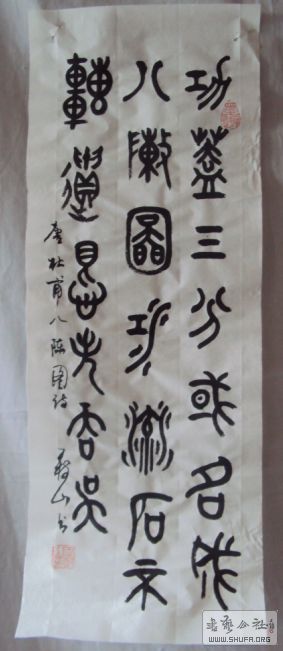 功蓋三分或名成
八敶圖江流石不
轉遺恨失吞吳
唐杜甫八陈图诗
山书
书艺公社
WWW.SHUFA.ORG